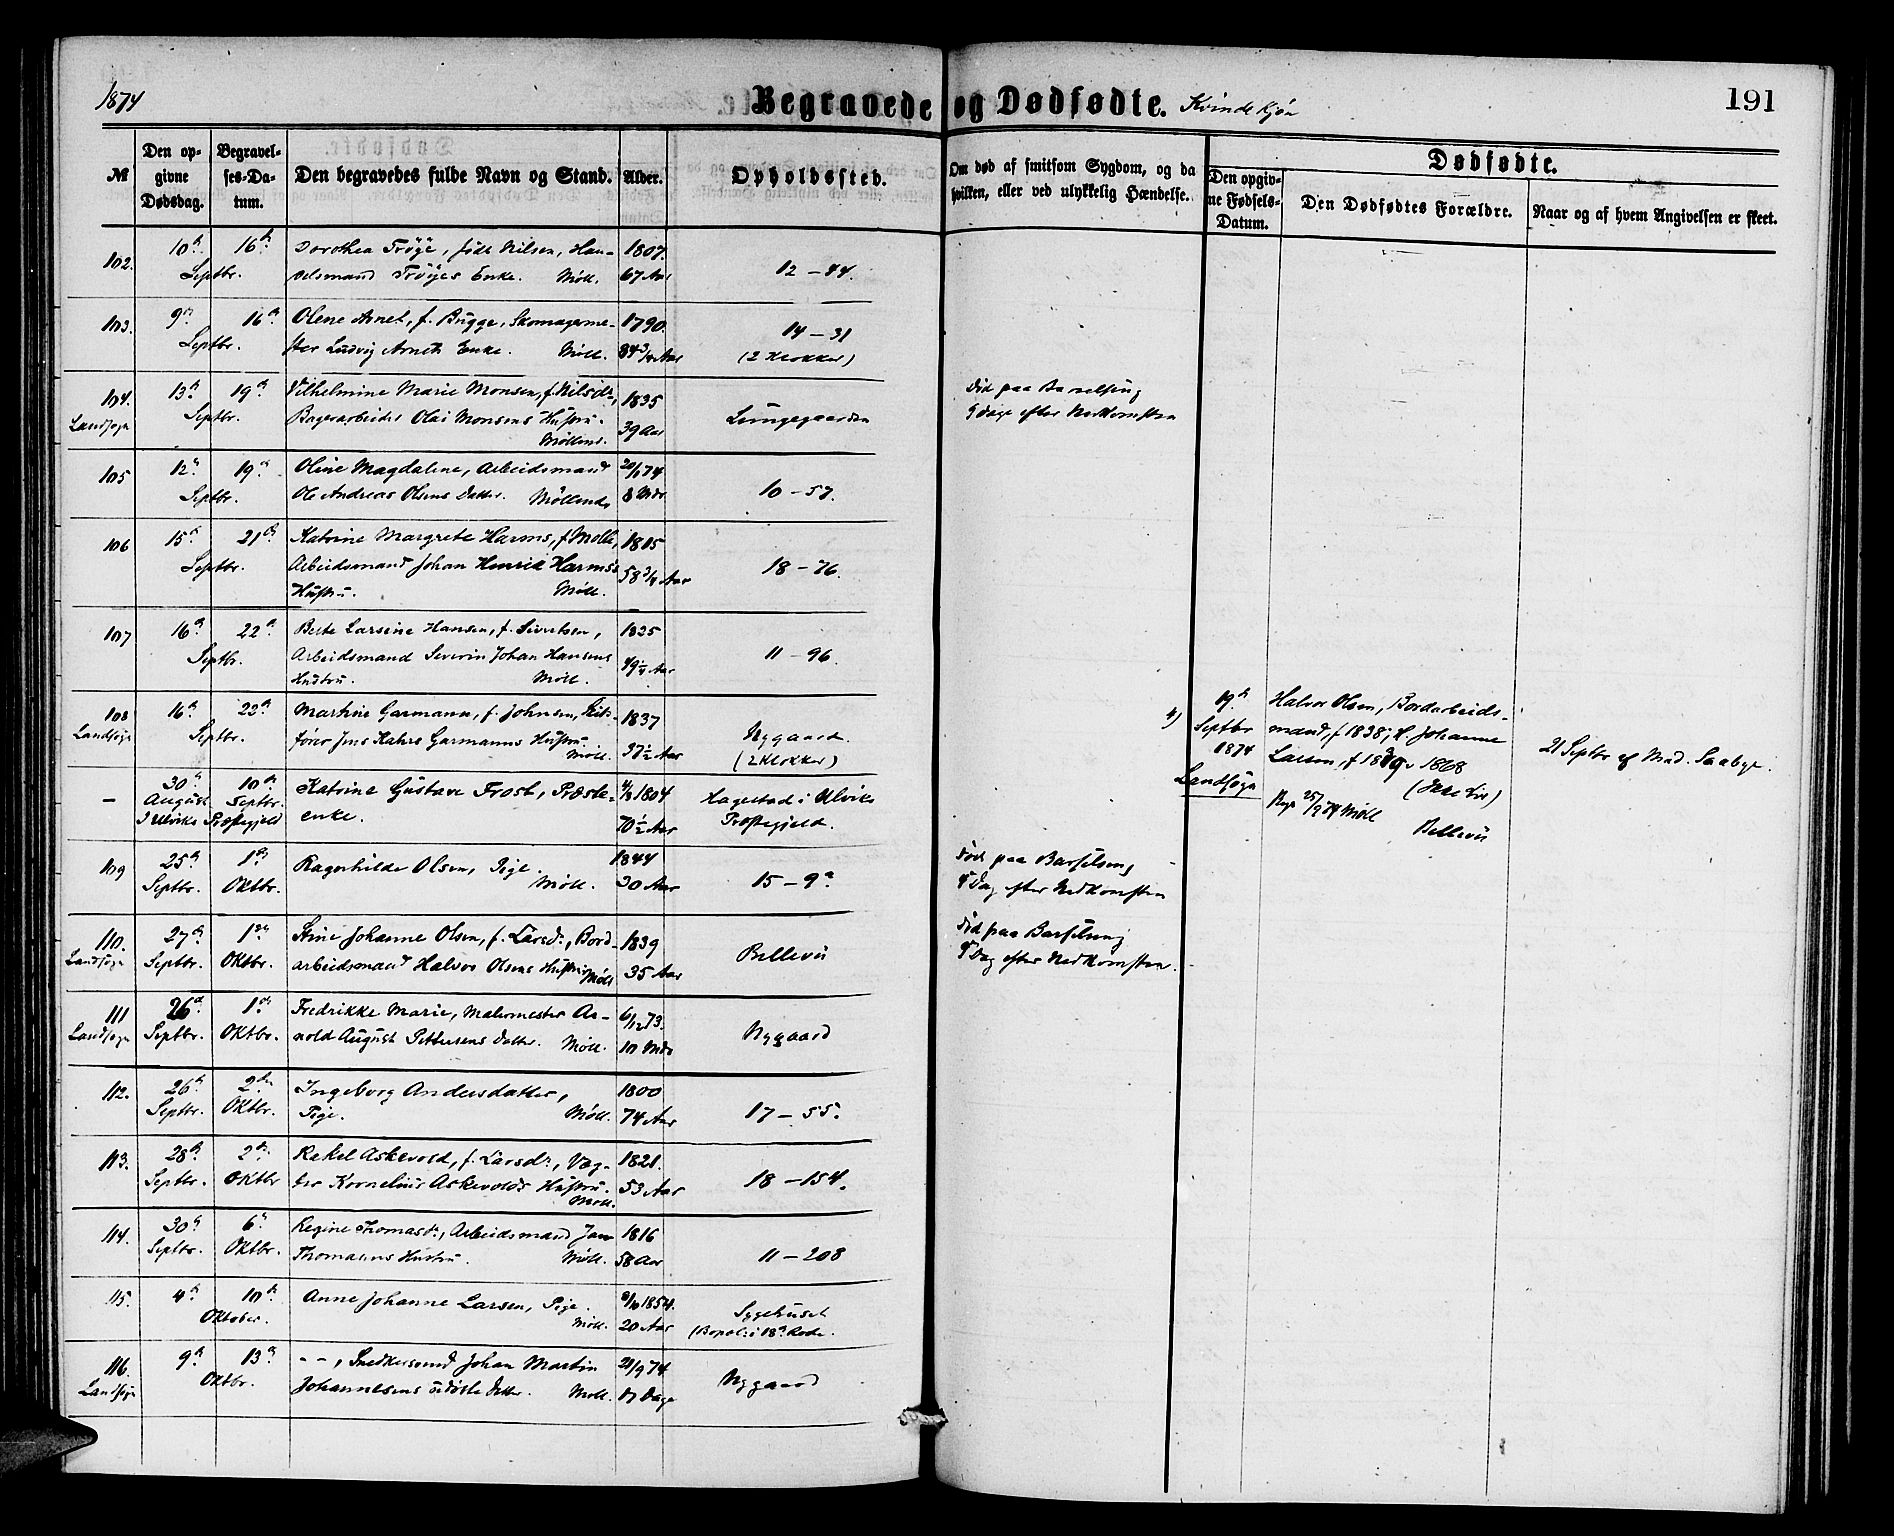 1874
Begravede og Dødfødte. Kvindekjøn
191
№
Den opgivne Dødsdag.
Begravelses-Datum.
Den begravedes fulde Navn og Stand.
Alder.
Opholdssted.
Om død af smitsom Sygdom, og da
hvilken, eller ved ulykkelig Hændelse.
Dødfødte.
Den opgivne Fødsels-Datum.
Den Dødfødtes Forældre.
Naar og af hvem Angivelsen er skeet.
102. 10de 16de Dorothea Trøye, født Nilsen, Han- 1807.
Septbr. delsmand Trøyes Enke. Møll. 67 Aar 12 – 44.
103. 9de 16de Olene Arnet, f. Bugge, Skomagerme- 1790.
Septbr. ster Ludvig Arnets Enke. Møll. 84 3/4 Aar 14 – 31
(2 Klokker)
104. 13de 19de Vilhelmine Marie Monsen, f. Nilsdr, 1835
Landsogn Septbr. Olai Monsens Hustru. 39 Aar Lungegaarden
Møllend.
Død paa Barselseng
9 Dage efter Nedkomsten
105 12te 19de Oline Magdalene, Arbeidsmand 20/1 74
Septbr. Ole Andreas Olsens Datter. Møllend. 8 Mdr. 10 – 57.
106 15de 21de Katrine Margrete Harms, f. Molle, 1815
Septbr. Arbeidsmand Johan Henrik Harms's 58 3/4 Aar 18 – 76.
Hustru. Møll.
107 16de 22de Berte Larsine Hansen, f. Sivertsen, 1825
Septbr. Arbeidsmand Severin Johan Hansens 49 1/4 Aar 11 – 96.
Hustru. Møll.
108 16de 22de Martine Garmann, f. Johnsen, Skibs- 1837
Landsogn Septbr. fører Jens Kahrs Garmanns Hustru. 37 1/2 Aar Nygaard.
Møll. (2 Klokker)
4) 19de Septbr 1874 Landsogn
Halvor Olsen, Bordarbeids-
mand, f 1838; H. Johanne
Larsen, f 1839 v 1868
(Ikke Liv)
Begr 25/9 74 Møll
Bellevue
21 Septbr af Mad. Saabye.
– 30te 10de Katrine Gustave Frost, Præste- 4/3 1804 Hagestad i Ulviks
August Septbr. enke. 70 1/2 Aar Præstegjeld.
I Ulviks Præstegjeld
109 25de 1ste Ragnhilde Olsen, Pige. 1844
Septbr. Oktbr. Møll. 30 Aar 15 – 9a
Død paa Barselseng
4 Dag efter Nedkomsten
110. 27de 1ste Stine Johanne Olsen, f. Larsdr, Bord- 1839
Landsogn Septbr. Oktbr. arbeidsmand Halvor Olsens Hustru Møll 35 Aar Bellevue
Død paa Barselseng
4 Dag efter Nedkomsten.
111 26de 1ste Fredrikke Marie, Malermester Ar- 6/12 73.
Landsogn Septbr. Oktbr. nold August Pettersens Datter. Møll. 10 Mdr Nygaard
112. 26de 2den Ingeborg Andersdatter, 1800
Septbr. Oktbr. Pige. Møll. 74 Aar 17 – 55.
113. 28de 2den Rakel Askevold, f. Larsdr, Væg- 1821.
Septbr. Oktbr ter Kornelius Askevolds Hustru. 53 Aar 18 – 154.
Møll.
114. 30te 6te Regine Thomasdr, Arbeidsmand Jan 1816
Septbr. Oktbr. Thomanns Hustru. Møll. 58 Aar 11 – 208
115. 4de 10de Anne Johanne Larsen, Pige. 1854. Sygehuset
Oktober. Møll. 20 Aar (Bopæl: i 18de Rode.
116. 9de 13de – –, Snedkersvend Johan Martin 21/9 74
Landsogn Oktbr. Johannesens udøbte Datter. Møll. 17 Dage Nygaard